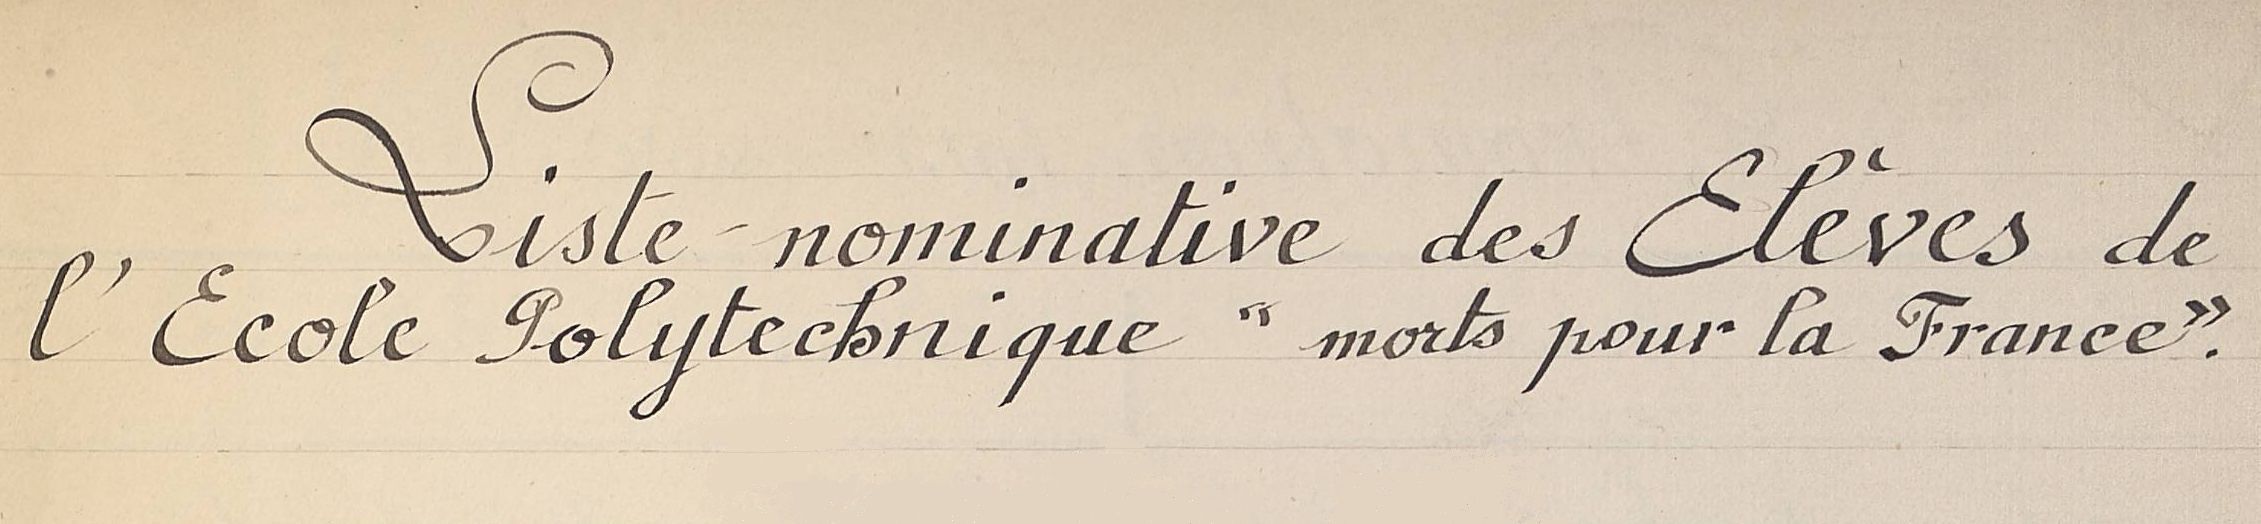 Liste-nominative des Elèves de
l'Ecole Polytechnique "morts pour la France".